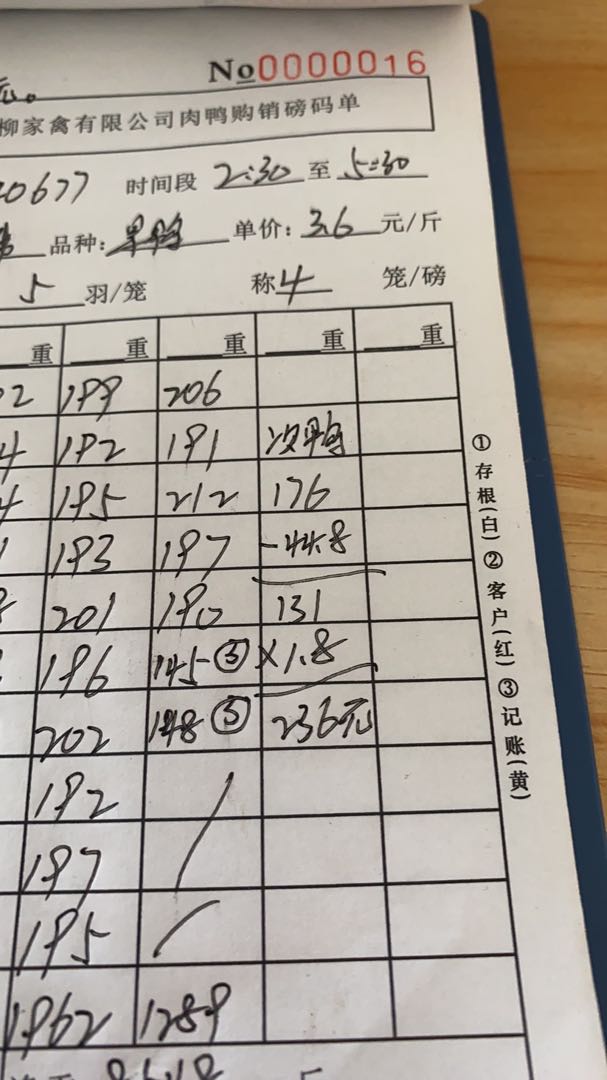 No0000016
柳家禽有限公司肉鸭购销磅码单
0677 时间段 2:30 至 5:30
品种: 单价: 3.6 元/斤
5 羽/笼 称 4 笼/磅
重 重 重 重 重
2 199 206
4 192 191 次鸭
4 195 212 176
193 197 -44.8
201 190 131
196 145 ③ ×1.8
202 148 ③ 236元
192
197
195
1962 1289
①存根(白)②客户(红)③记账(黄)